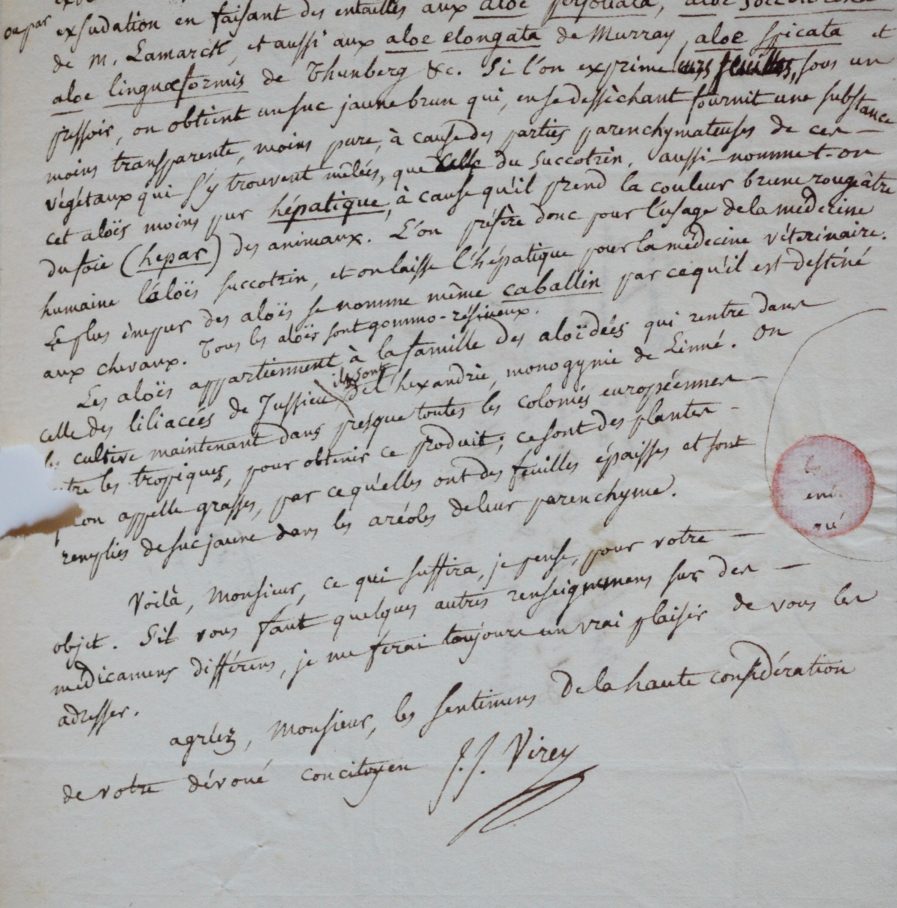 ou par
exsudation en faisant des entailles aux aloe perfoliata, aloe
de M. Lamarck, et aussi aux aloe elongata de Murray, aloe spicata et
aloe linguæformis de Thunberg &c. Si l'on exprime leurs feuilles, sous un
pressoir, on obtient un suc jaune brun qui, en se dessèchant fournit une substance
moins transparente, moins pure, à cause des parties parenchymateuses de ces
végétaux qui s'y trouvent mêlées, que celle du succotrin. aussi nomme-t-on
cet aloës moins pur hépatique, à cause qu'il prend la couleur brune rougeâtre
du foie (hepar) des animaux. L'on préfère donc pour l'usage de la médecine
humaine l'aloës succotrin, et on laisse l'hépatique pour la médecine vétérinaire.
Le plus impur des aloës se nomme même caballin par ce qu'il est destiné
aux chevaux. Tous les aloës sont gommo-résineux.
Les aloës appartiennent à la famille des aloïdées qui rentre dans
celle des liliacées de Jussieu ils sont de l'hexandrie, monogynie de Linné. On
les cultive maintenant dans presque toutes les colonies européennes
entre les tropiques, pour obtenir ce produit; ce sont des plantes
qu'on appelle grasses, par ce qu'elles ont des feuilles épaisses et sont
remplies de suc jaune dans les aréoles de leur parenchyme.
Voilà, Monsieur, ce qui suffira, je pense, pour votre
objet. S'il vous faut quelques autres renseignemens sur des
médicamens différens, je me ferai toujours un vrai plaisir de vous les
adresser.
agréez, Monsieur, les sentimens de la haute considération
de votre dévoué concitoyen J. J. Virey